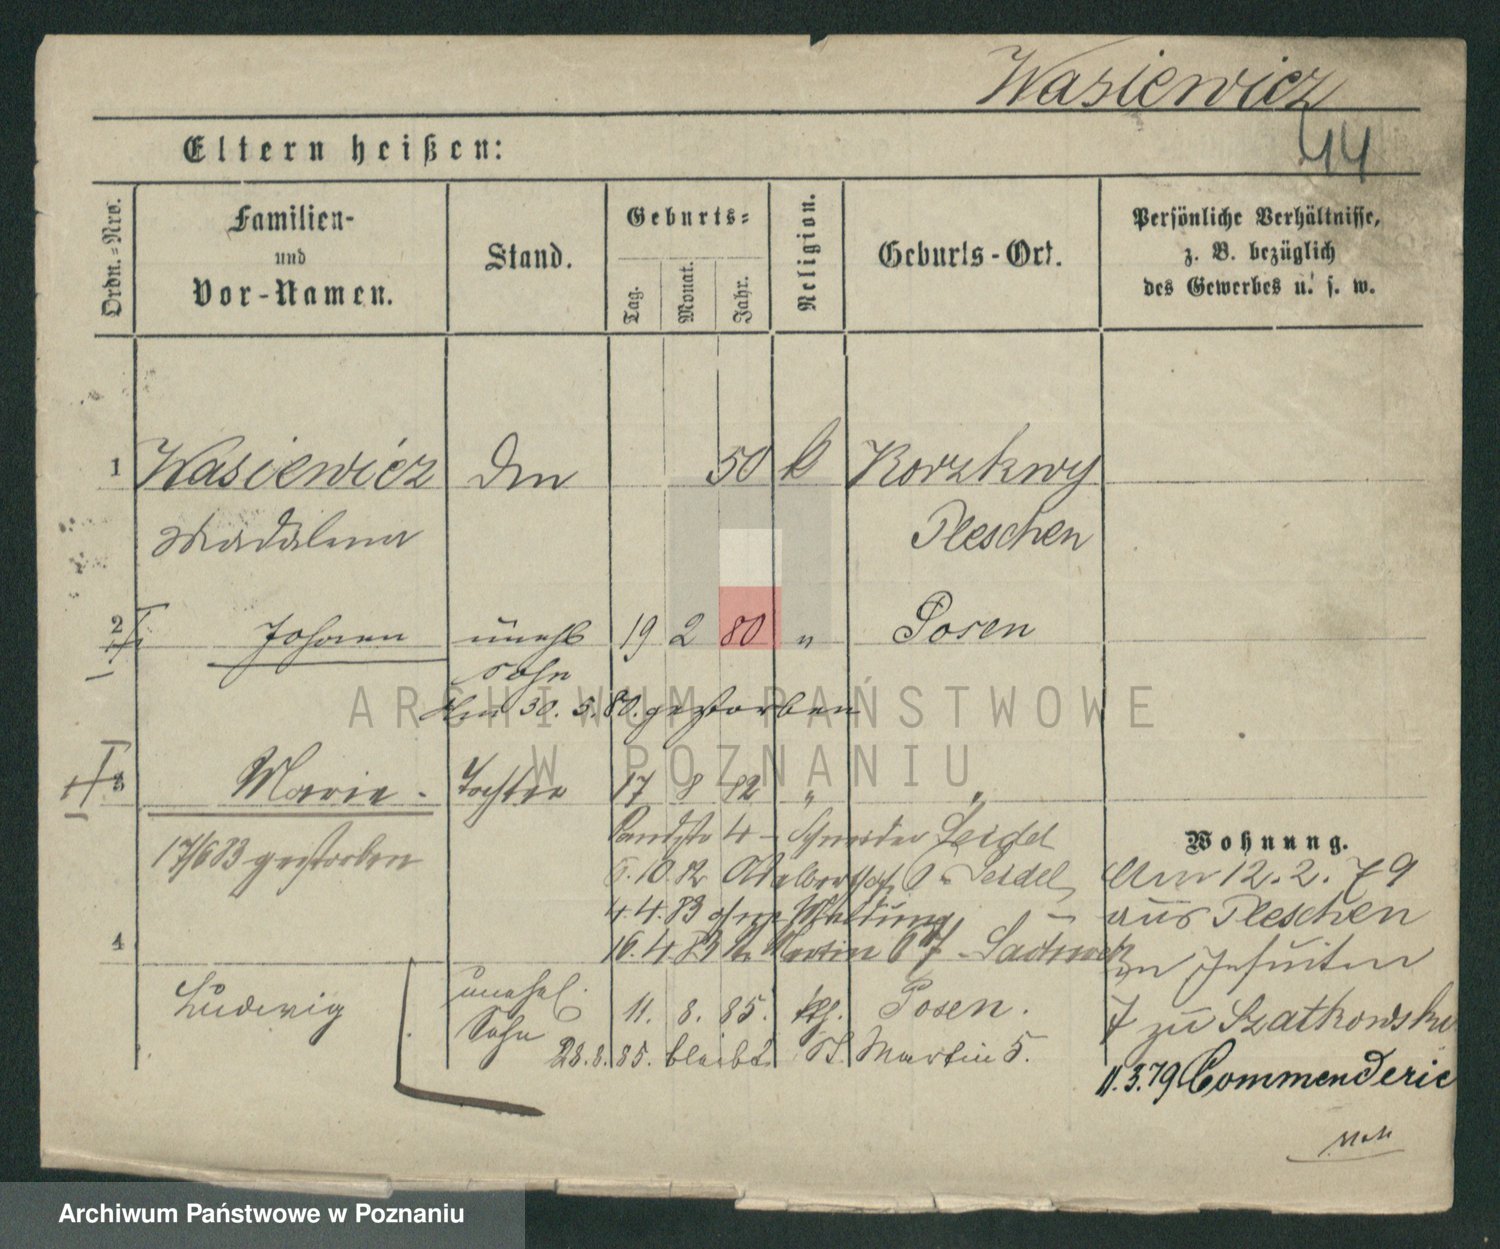 Wasiewicz
44
Eltern heißen:
Ordn.=Nro.
Familien-
und
Vor-Namen.
Stand.
Geburts=
Tag.
Monat.
Jahr.
Religion.
Geburts-Ort.
Persönliche Verhältnisse,
z. B. bezüglich
des Gewerbes u. s. w.
1 Wasiewicz 50 k Korzkwy
Pleschen
2 Johann unehl 19 2 80 " Posen
Sohn
30. 5. 80. gestorben
3 Marie Tochter 17 8 82 " "
17/6 83 gestorben
4 Schneider Seidel
6.10.82 Seidel
4.4.83 ohne Meldung
16.4.83 St. Martin 67
4
Ludwig unehel. 11. 8. 85. kth. Posen.
Sohn
28.8.85. bleibt St. Martin 5.
Wohnung.
Am 12.2.79
aus Pleschen
Jesuiten
7 zu Szatkowski
11.3.79 Commenderie
ARCHIWUM PAŃSTWOWE
W POZNANIU
Archiwum Państwowe w Poznaniu